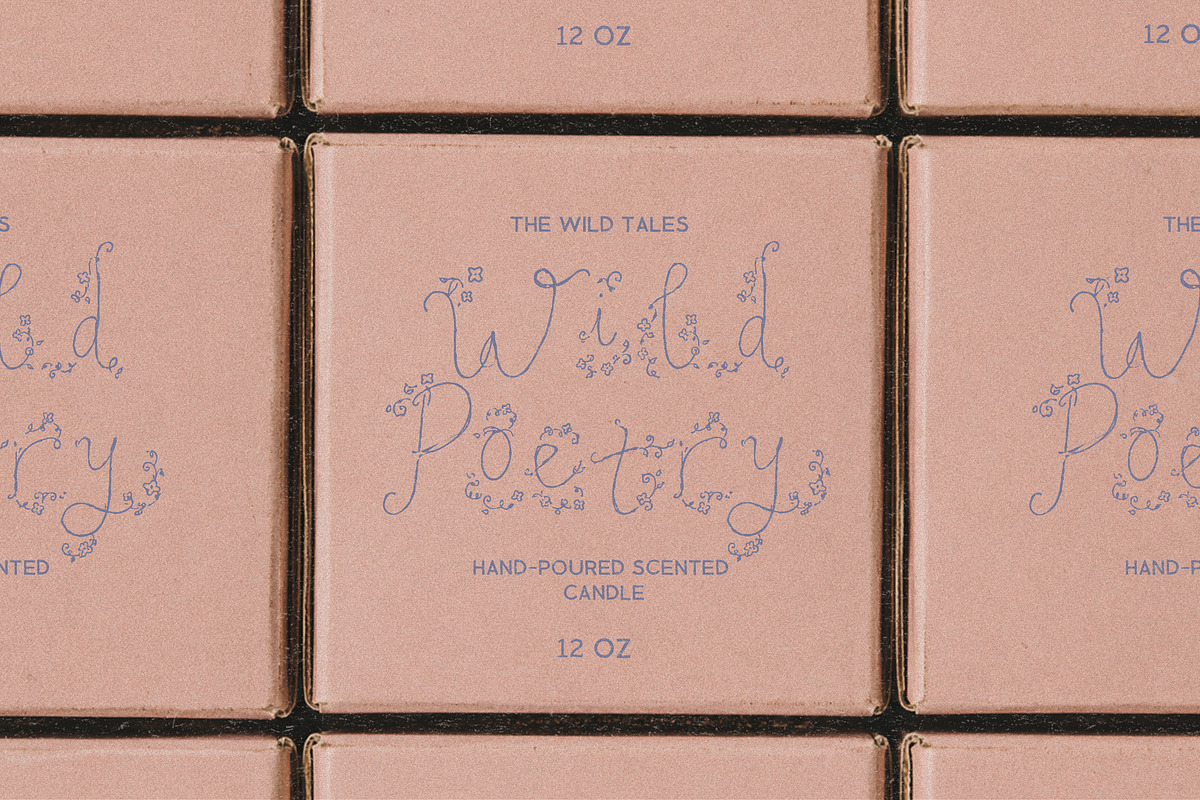 12 OZ
12 O
S
ld
ry
NTED
THE WILD TALES
Wild
Poetry
HAND-POURED SCENTED
CANDLE
12 OZ
THE
W
Poe
HAND-P